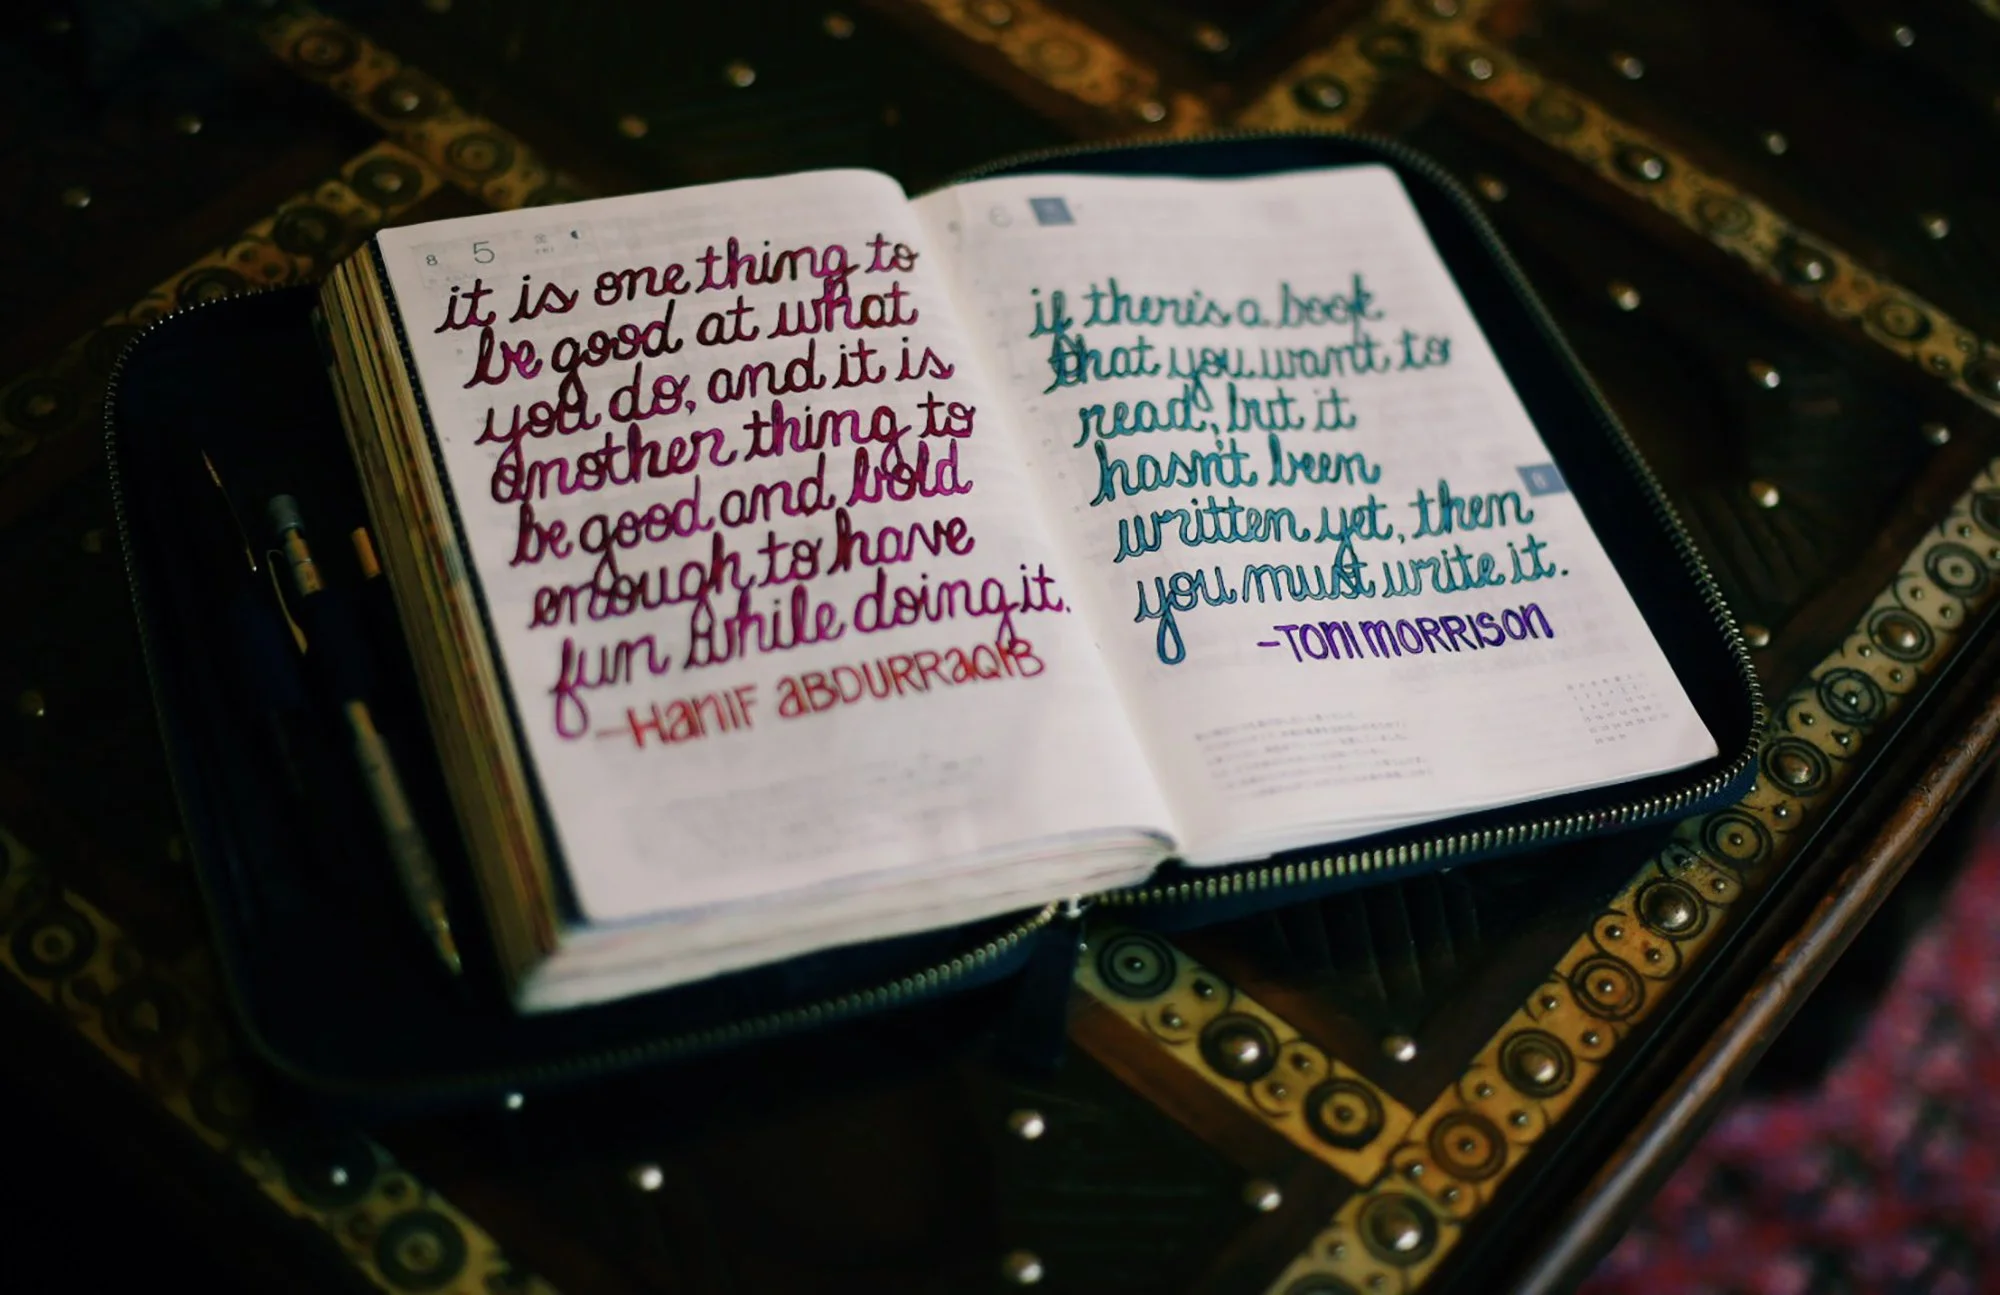 8 5
it is one thing to
be good at what
you do, and it is
another thing to
be good and bold
enough to have
fun while doing it.
-HANIF ABDURRAQIB
6
if there's a book
that you want to
read, but it
hasn't been
written yet, then
you must write it.
-TONI MORRISON
8